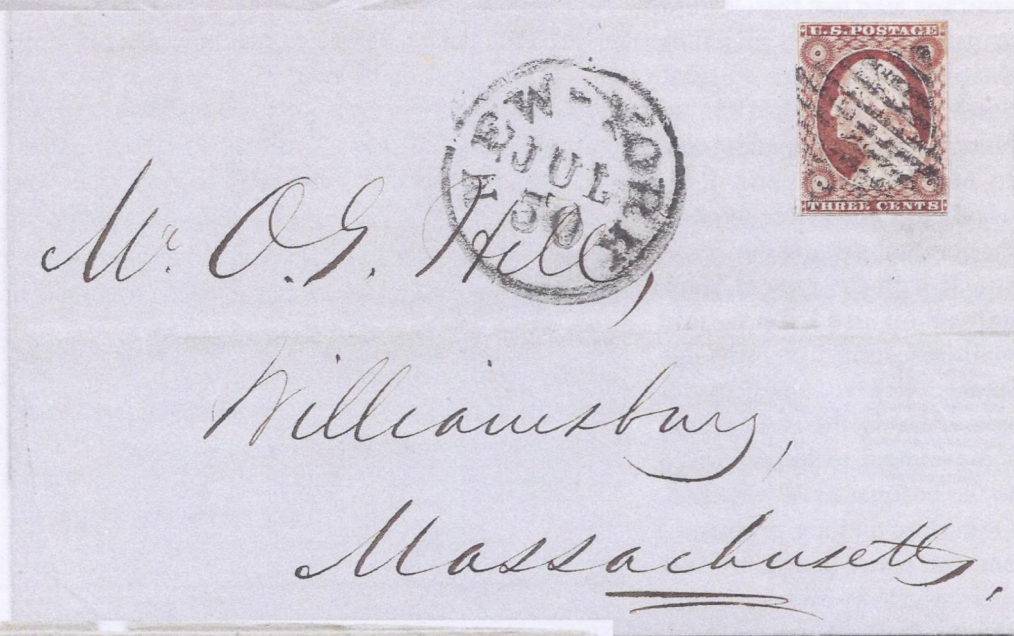 U.S. POSTAGE
THREE CENTS
NEW-YORK
JUL
30
Mr. O. G. Hill,
Williamsburg,
Massachusetts,